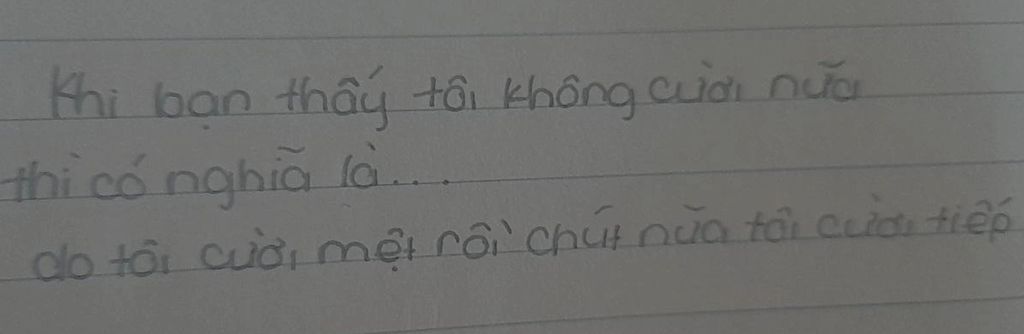 Khi bạn thấy tôi không cười nữa
thì có nghĩa là...
do tôi cười mệt rồi chút nữa tôi cười tiếp